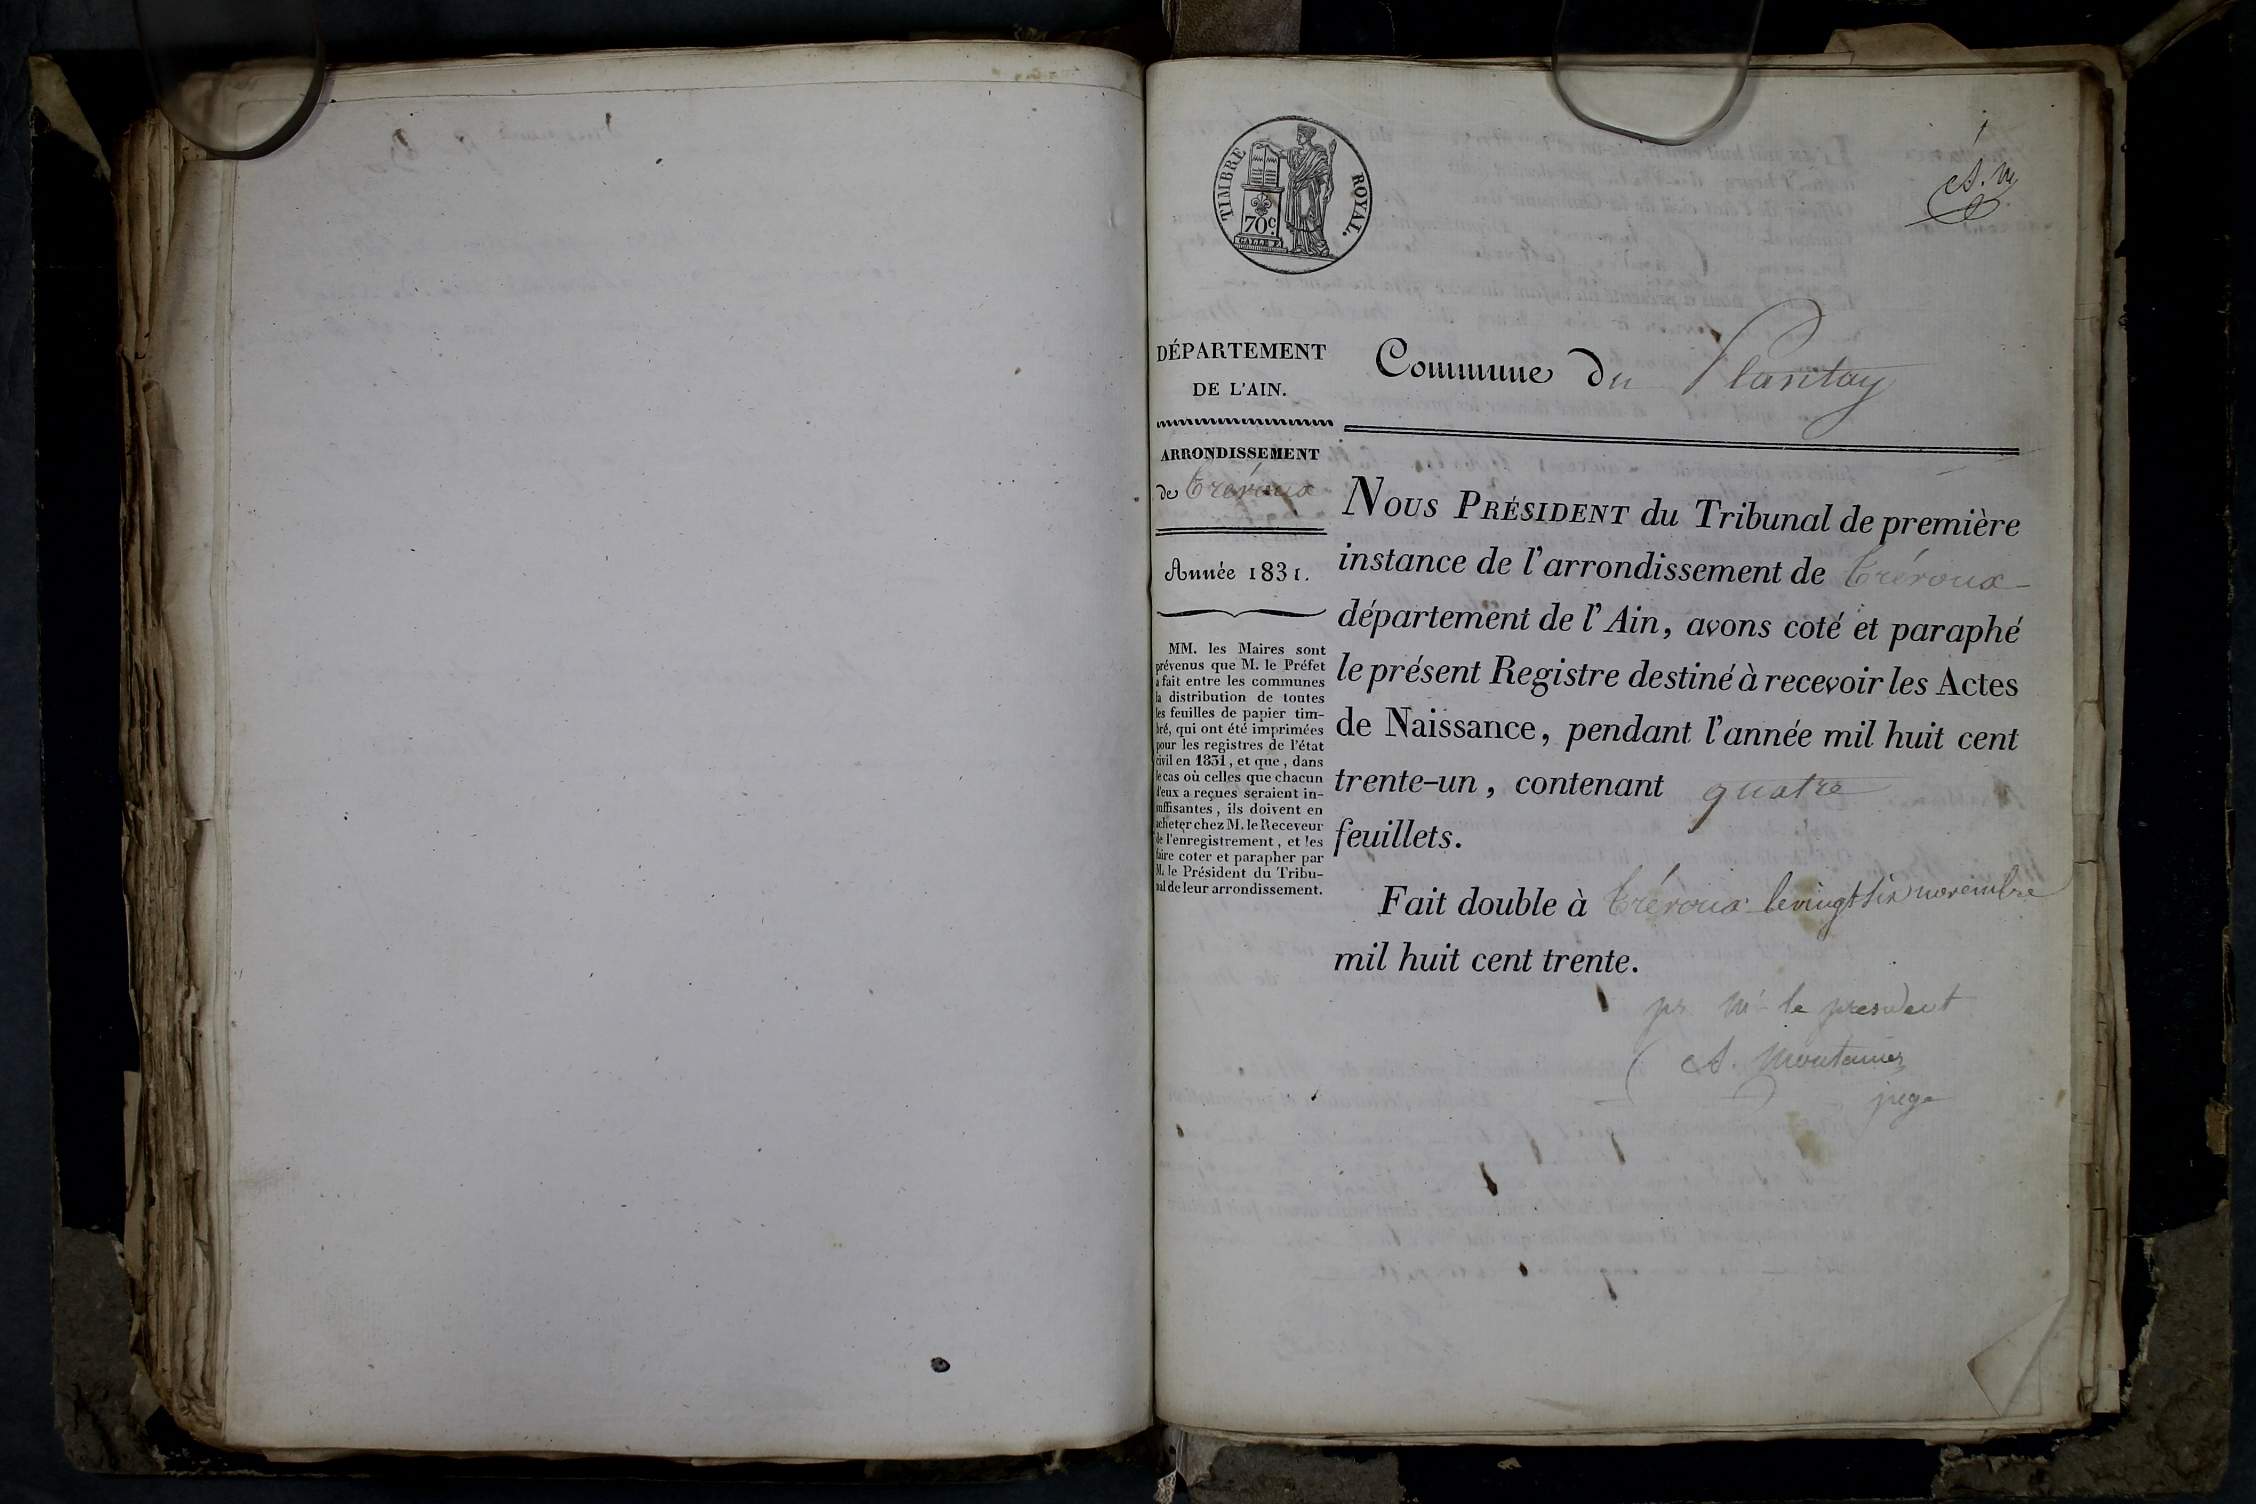 TIMBRE ROYAL.
70 c.
GALLE F.
1
A. M
DÉPARTEMENT
DE L'AIN.
Commune du Plantay
ARRONDISSEMENT
de Trévoux
Année 1831.
MM. les Maires sont
prévenus que M. le Préfet
a fait entre les communes
la distribution de toutes
les feuilles de papier tim-
bré, qui ont été imprimées
pour les registres de l'état
civil en 1831, et que, dans
le cas où celles que chacun
d'eux a reçues seraient in-
suffisantes, ils doivent en
acheter chez M. le Receveur
de l'enregistrement, et les
faire coter et parapher par
M. le Président du Tribu-
nal de leur arrondissement.
NOUS PRÉSIDENT du Tribunal de première
instance de l'arrondissement de Trévoux
département de l'Ain, avons coté et paraphé
le présent Registre destiné à recevoir les Actes
de Naissance, pendant l'année mil huit cent
trente-un, contenant quatre
feuillets.
Fait double à Trévoux le vingt six novembre
mil huit cent trente.
pr Mr le president
A. Moutanier
juge